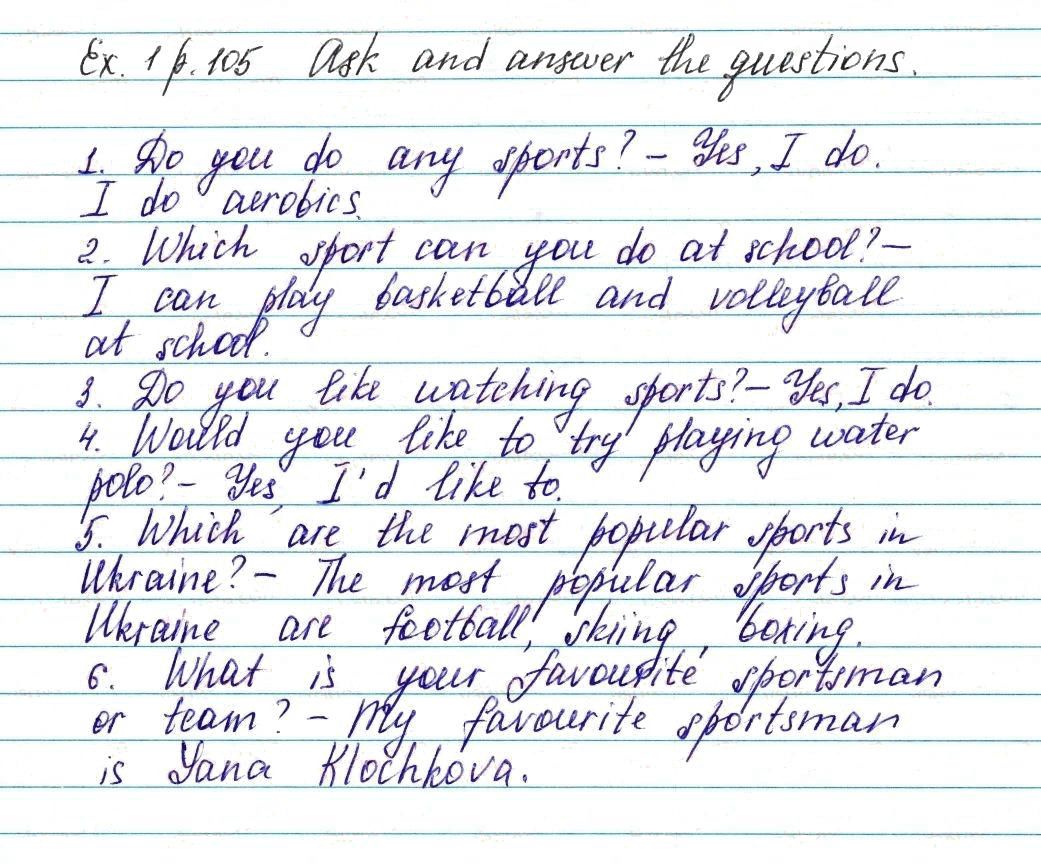 Ex. 1 p. 105 Ask and answer the questions.
1. Do you do any sports? – Yes, I do.
I do aerobics.
2. Which sport can you do at school? –
I can play basketball and volleyball
at school.
3. Do you like watching sports? – Yes, I do.
4. Would you like to try playing water
polo? – Yes, I'd like to.
5. Which are the most popular sports in
Ukraine? – The most popular sports in
Ukraine are football, skiing, boxing.
6. What is your favourite sportsman
or team? – My favourite sportsman
is Yana Klochkova.